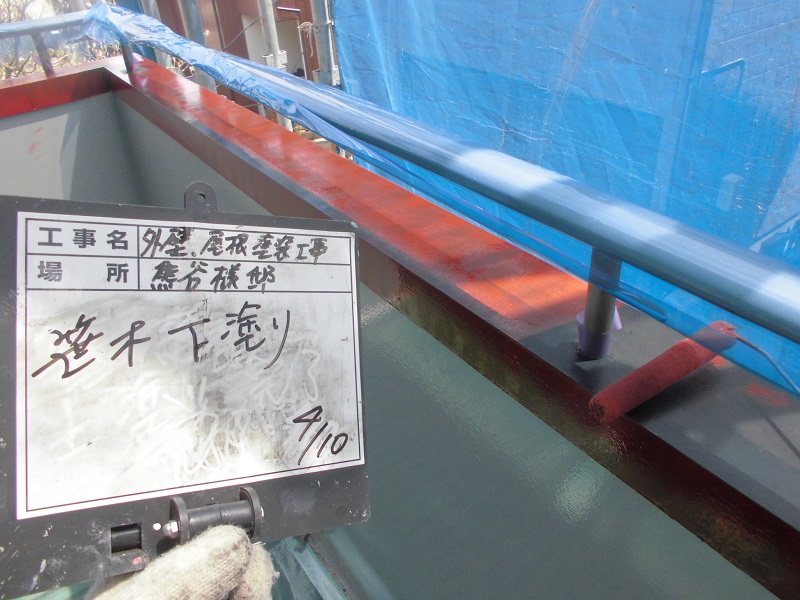 工事名 外壁、屋根塗装工事
場所 熊谷様邸
笠木下塗り
4/10